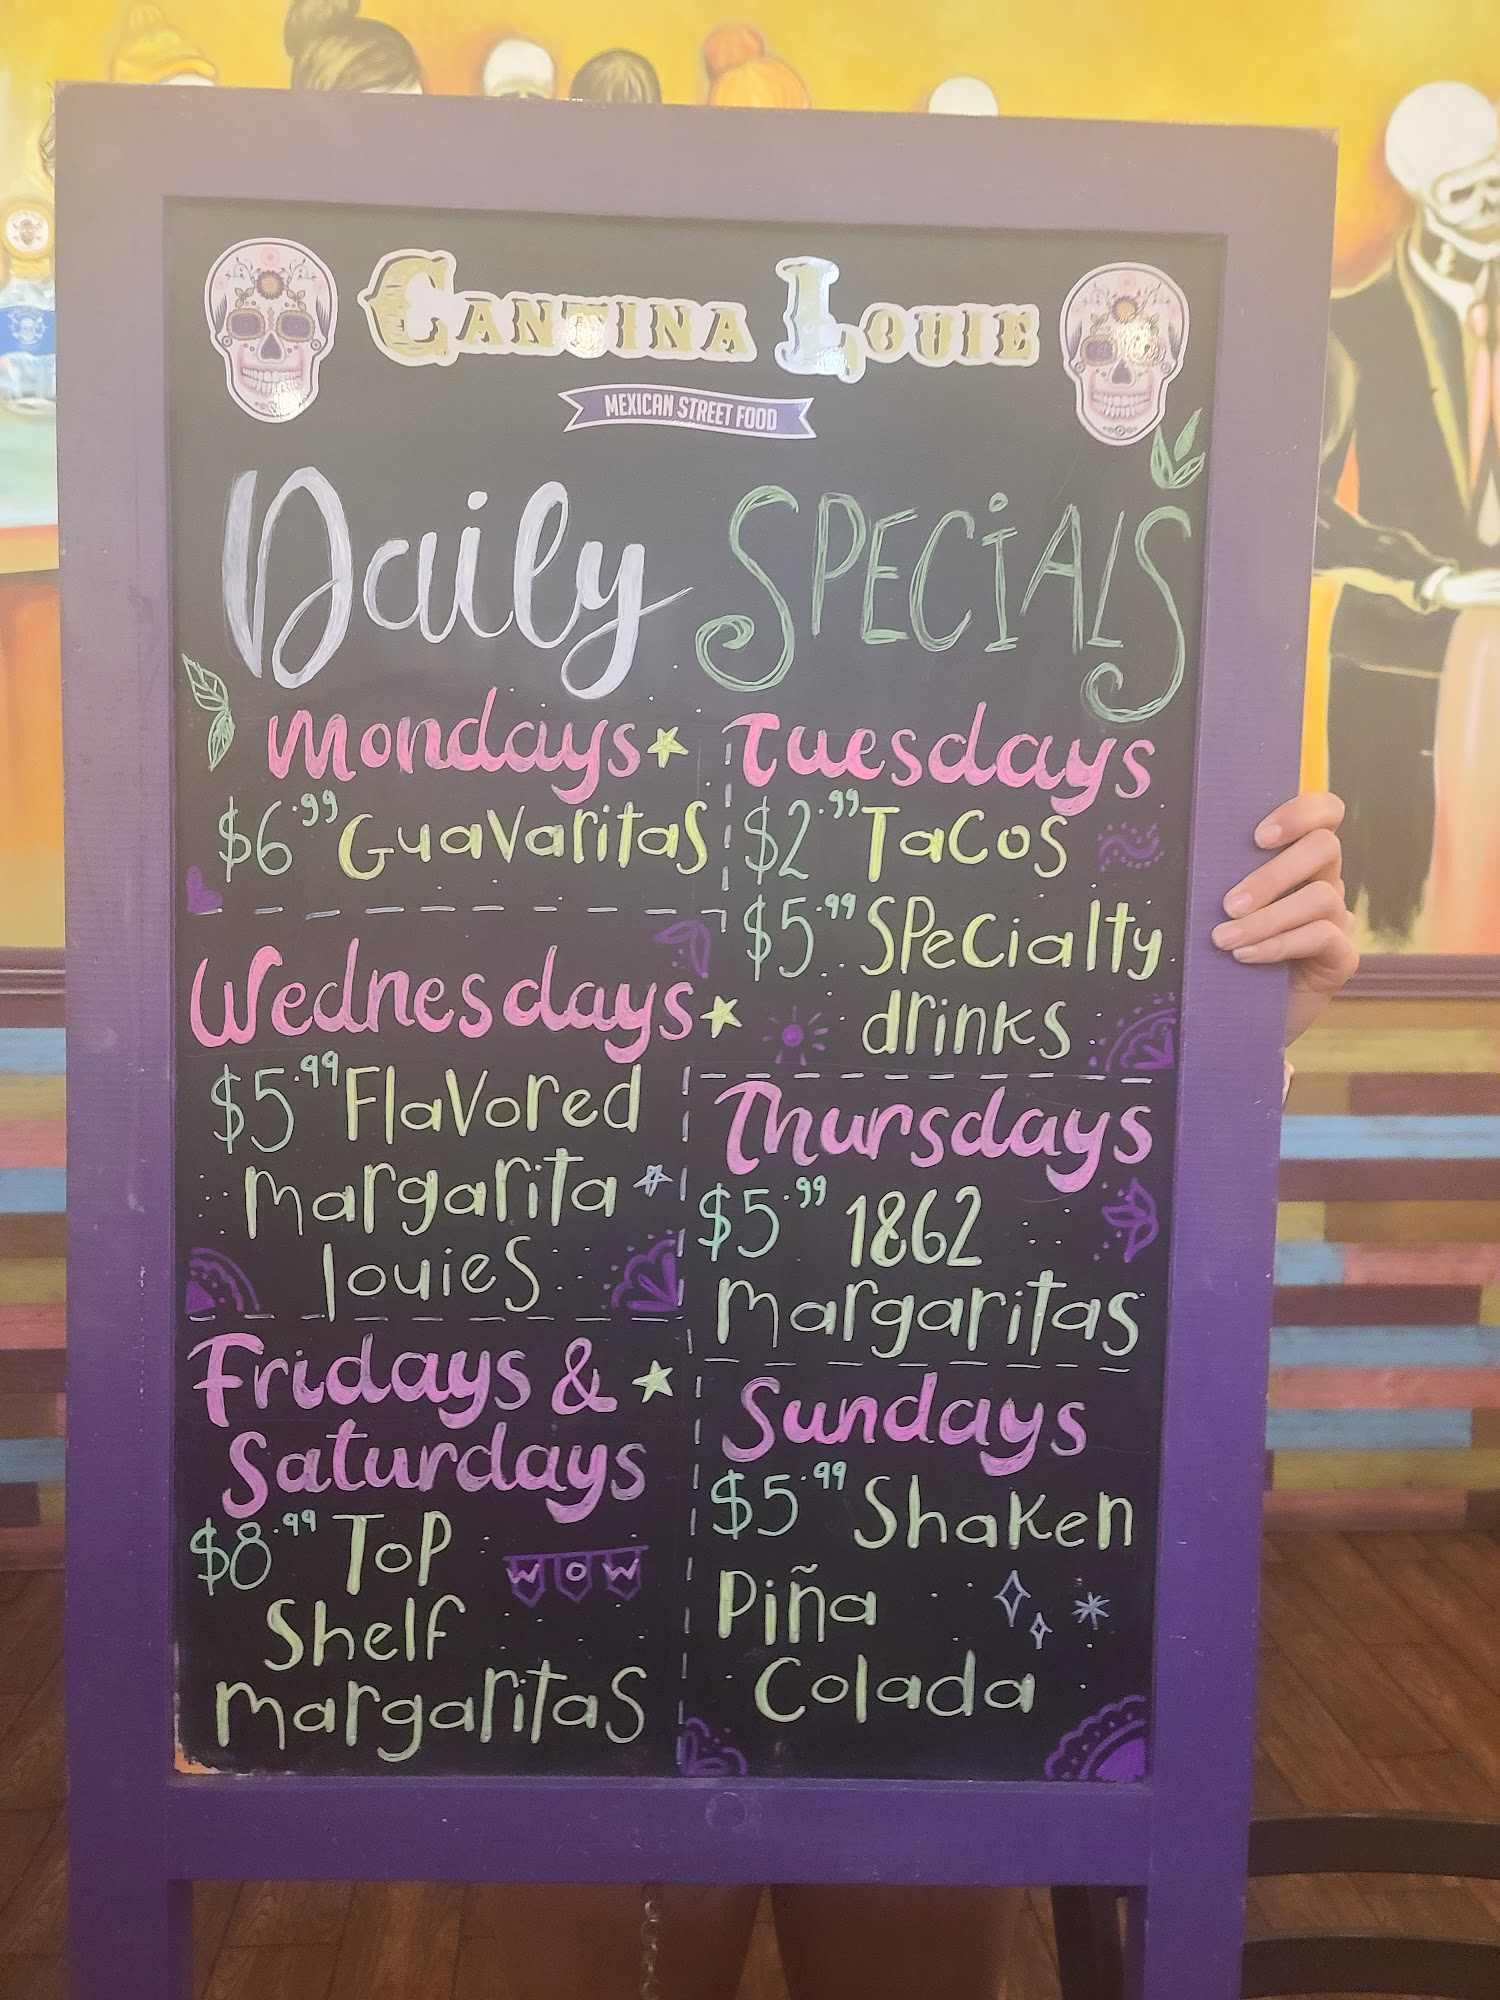 CANTINA LOUIE
MEXICAN STREET FOOD
Daily SPECiALS
Mondays
$6.99 Guavaritas
Tuesdays
$2.99 Tacos
$5.99 Specialty
drinks
Wednesdays
$5.99 Flavored
margarita
louies
Thursdays
$5.99 1862
margaritas
Fridays &
Saturdays
$8.99 Top
Shelf
margaritas
WOW
Sundays
$5.99 Shaken
Piña
Colada